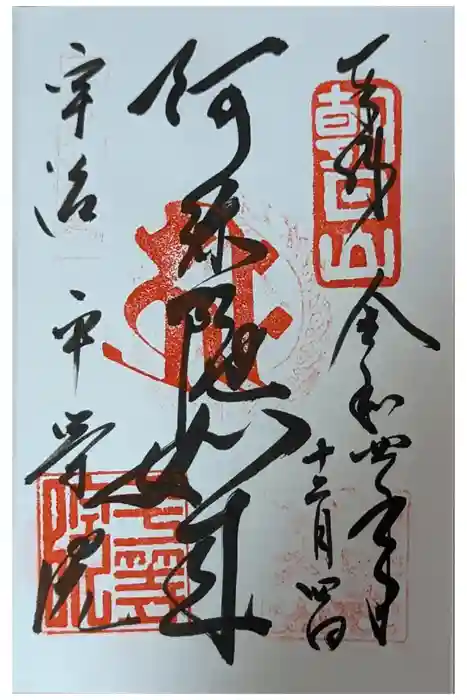 奉拝
朝日山
令和四年
十二月四日
阿弥陀如来
宇治 平等院
平等院